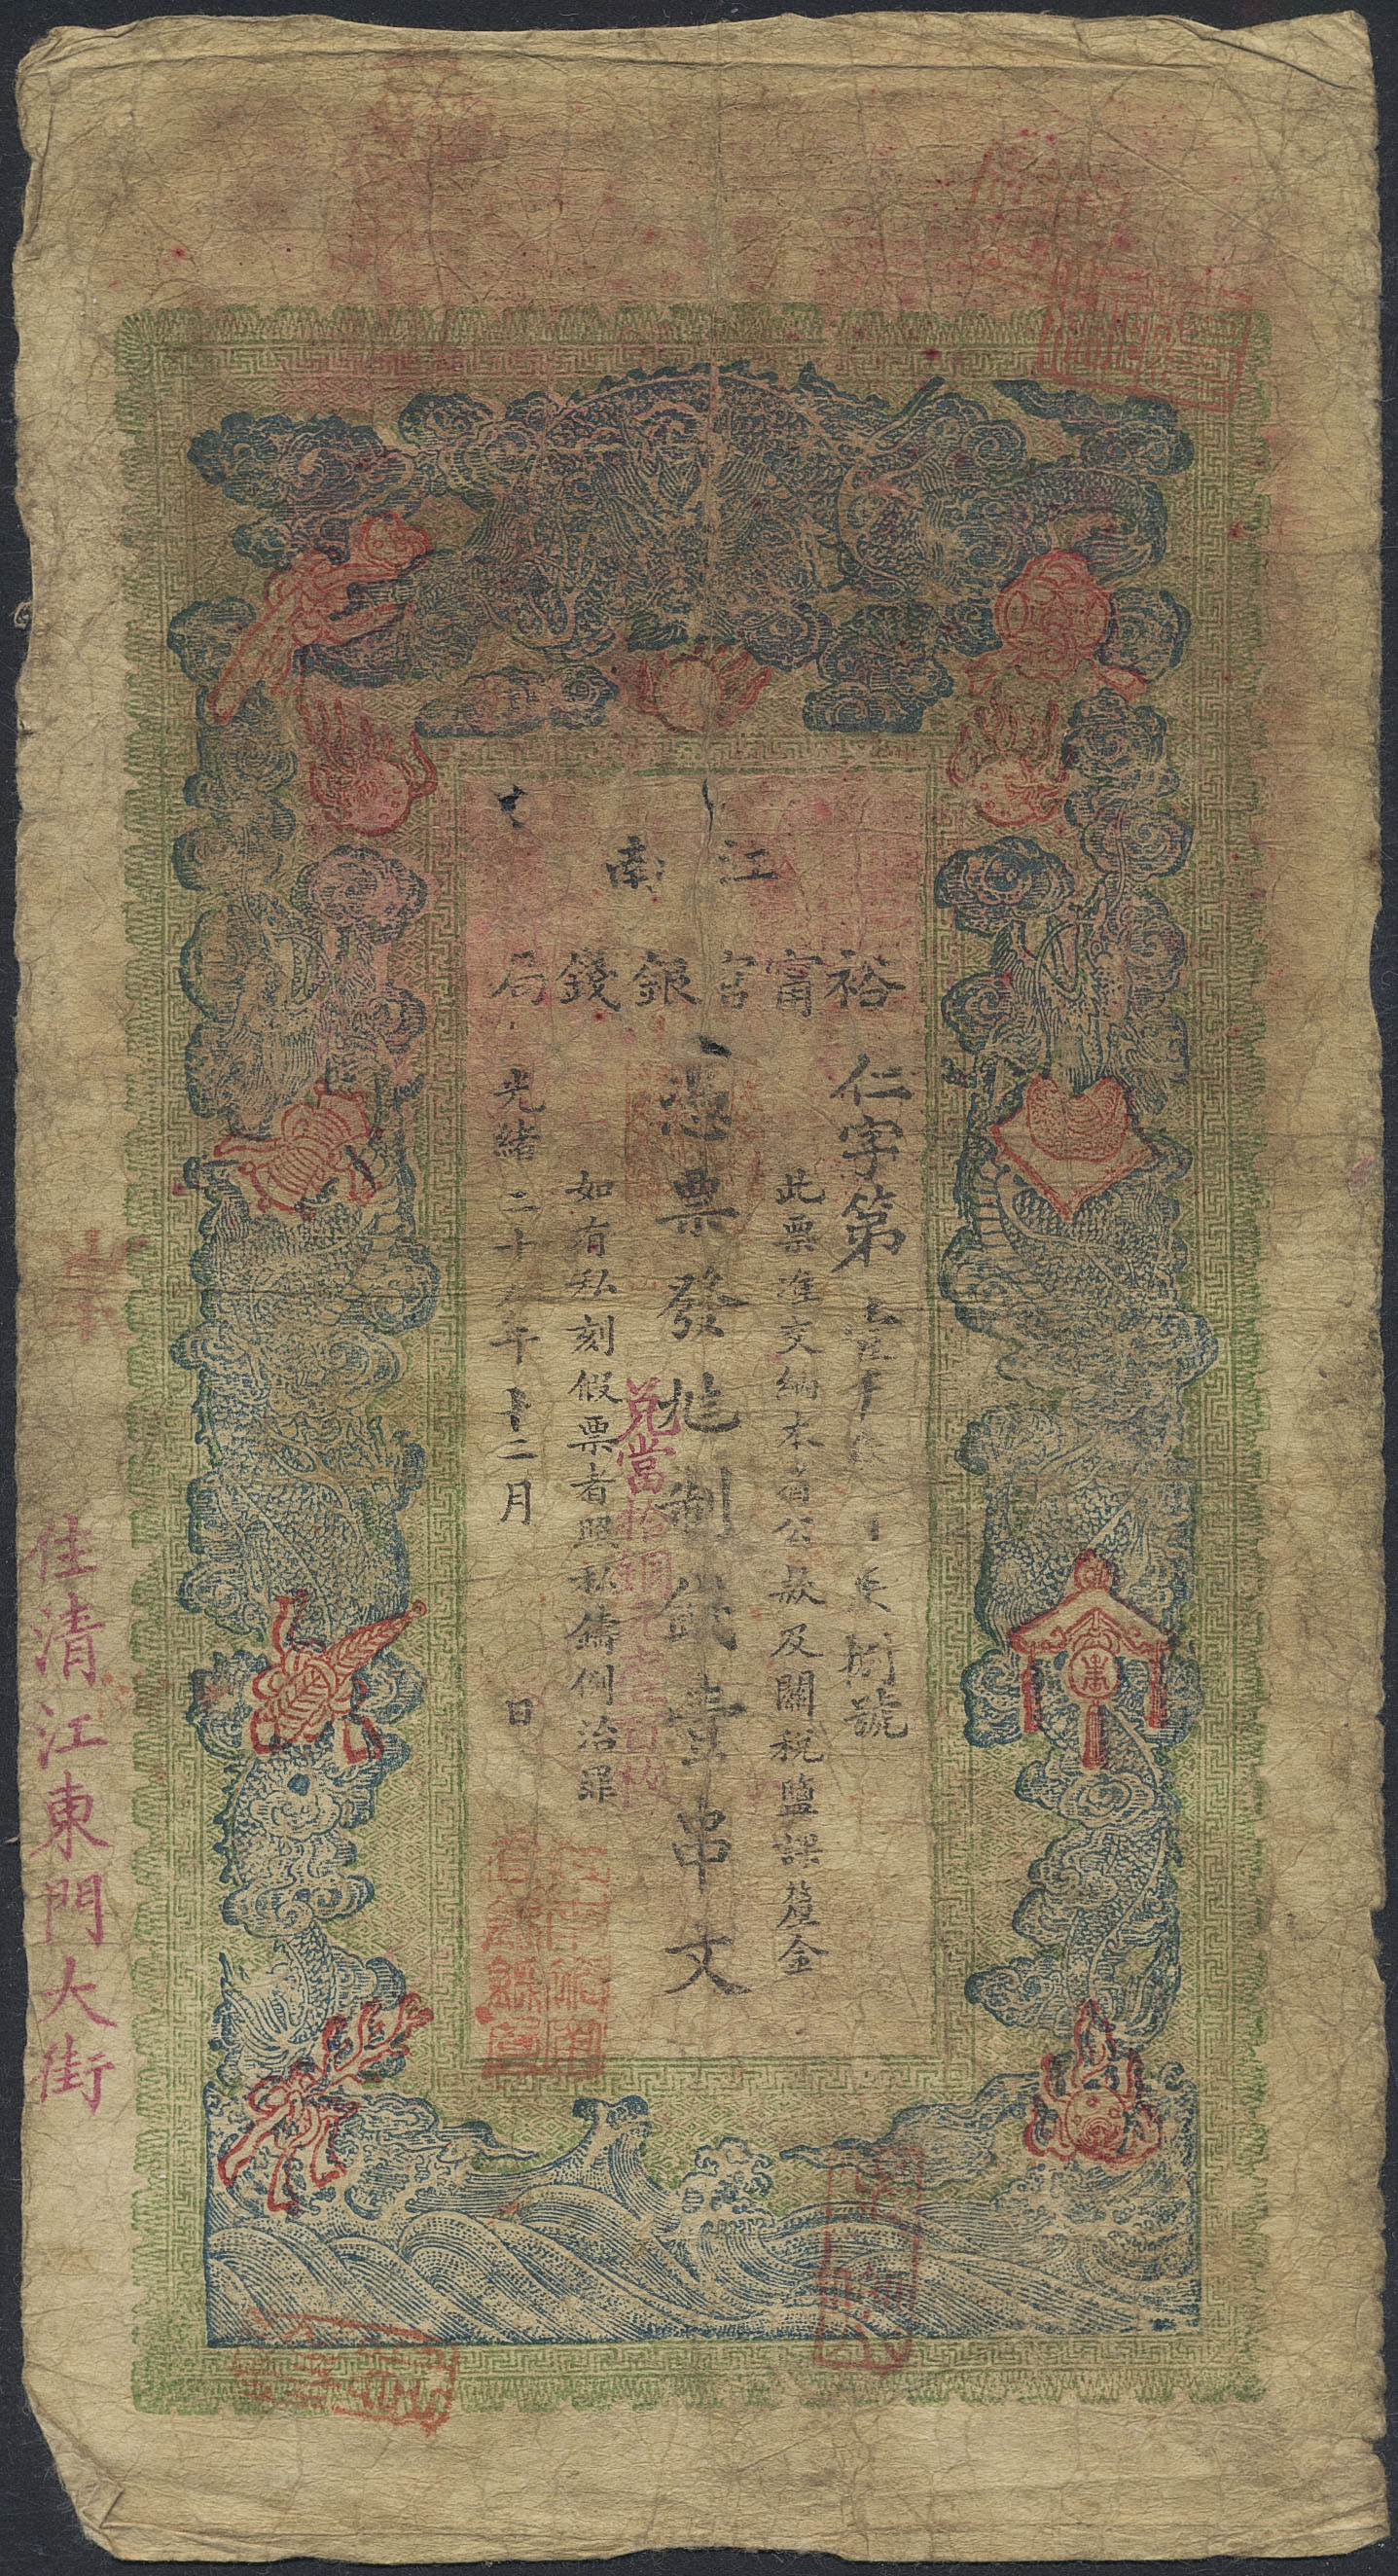 江南
裕富官銀錢局
仁字第 號
此票準交納本省公款及關稅鹽課釐金
憑票發兌制錢壹串文
兌當拾銅元壹百枚
如有私刻假票者照私鑄例治罪
光緒二十 年十二月 日
住清江東門大街